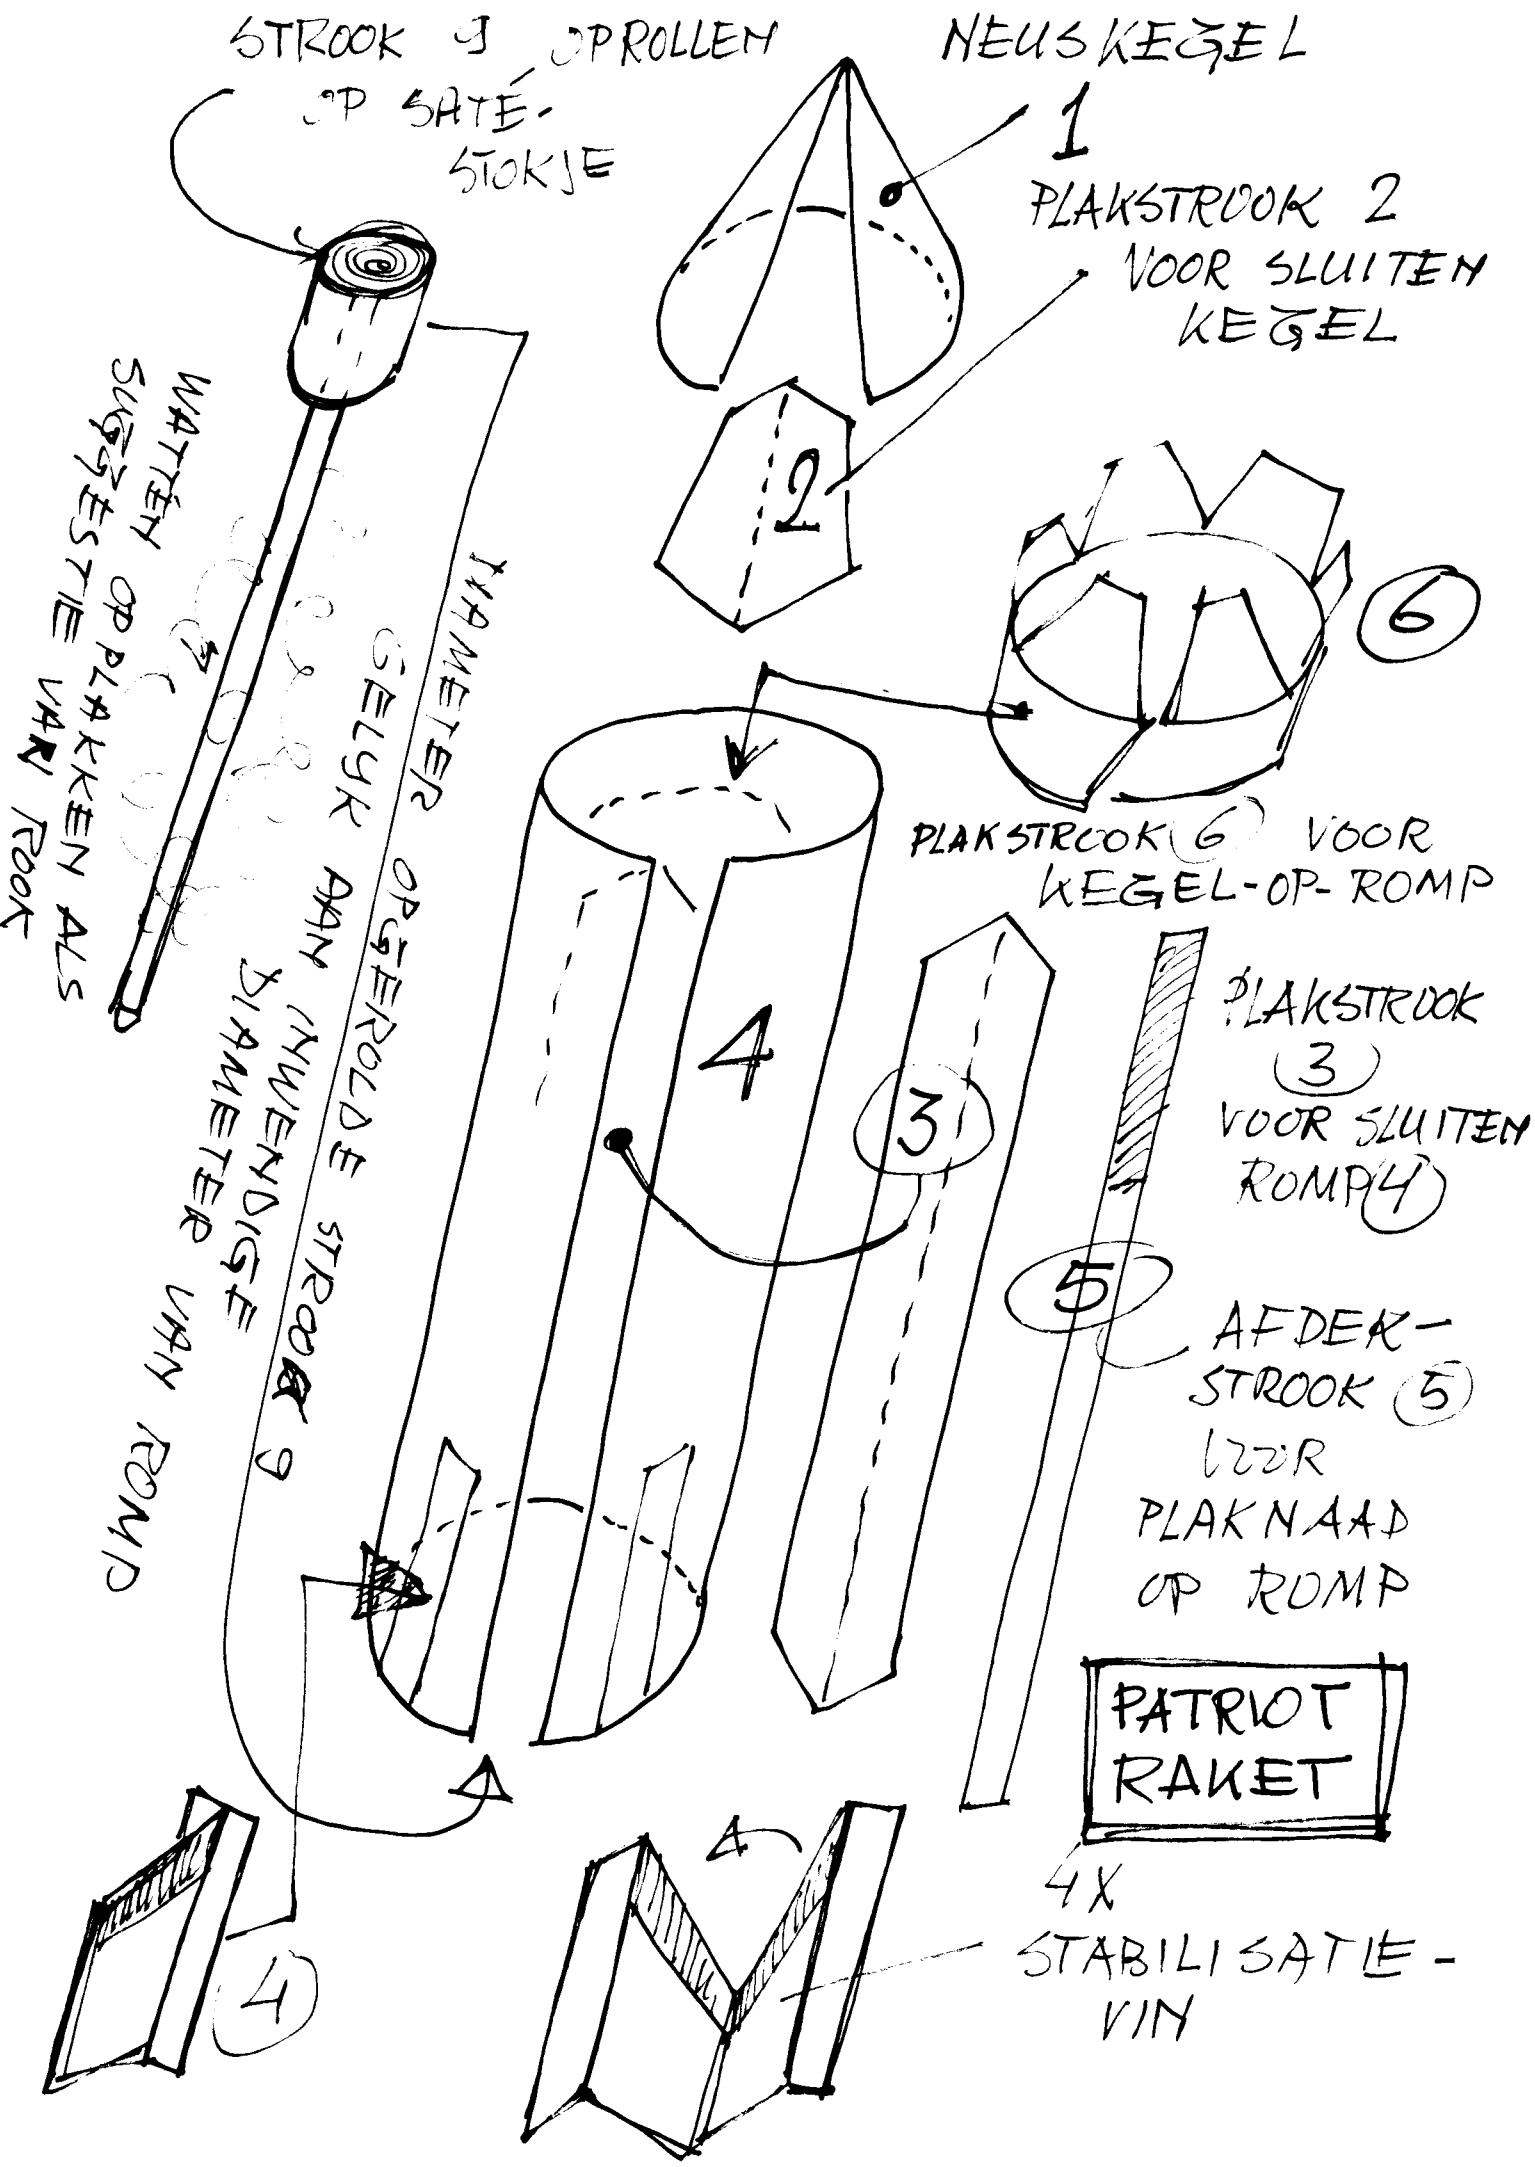 STROOK 9 OPROLLEN
OP SATÉ-
STOKJE
NEUSKEGEL
1
PLAKSTROOK 2
VOOR SLUITEN
KEGEL
2
6
PLAKSTROOK 6 VOOR
KEGEL-OP-ROMP
WATTEN OPPLAKKEN ALS
SUGGESTIE VAN ROOK
DIAMETER OPGEROLDE STROOK 9
GELYK AAN INWENDIGE
DIAMETER VAN ROMP
4
3
PLAKSTROOK
3
VOOR SLUITEN
ROMP 4
5
AFDEK-
STROOK 5
VOOR
PLAKNAAD
OP ROMP
PATRIOT
RAKET
4X
STABILISATIE-
VIN
4